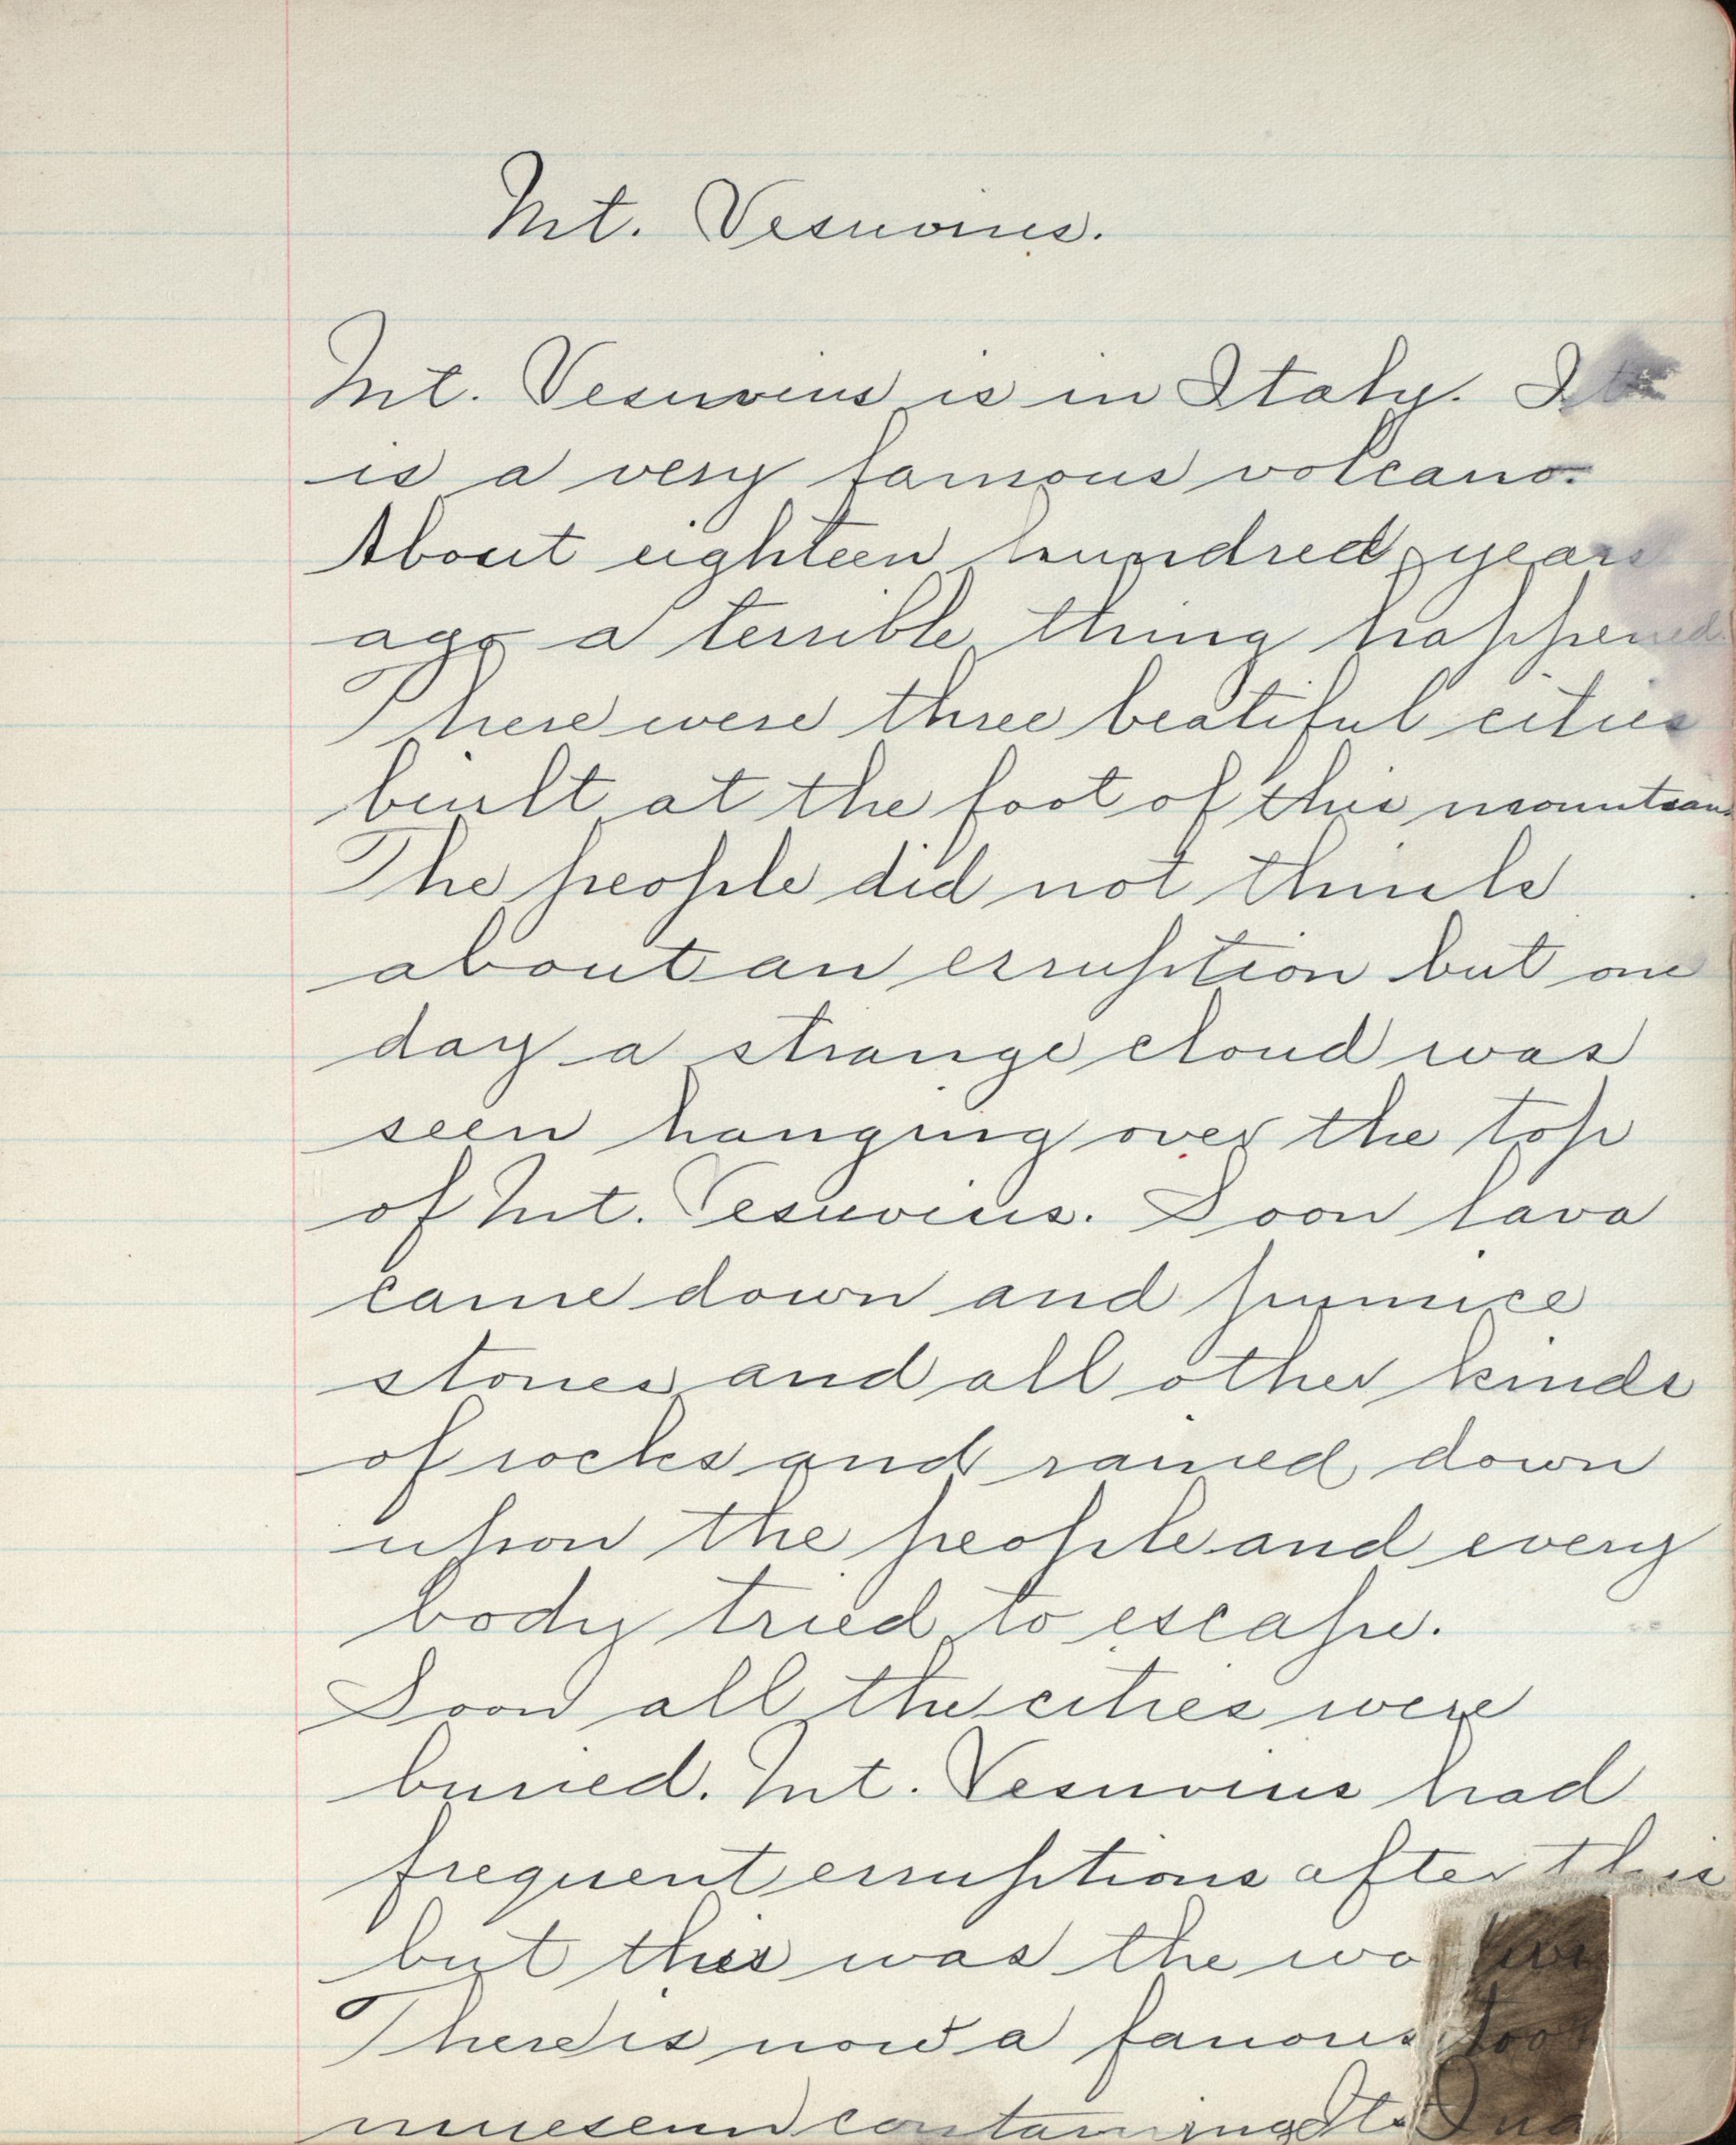 Mt. Vesuvius.
Mt. Vesuvius is in Italy. It
is a very famous volcano.
About eighteen hundred years
ago a terrible thing happened
There were three beatiful cities
built at the foot of this mountain
The people did not think
about an erruption but one
day a strange cloud was
seen hanging over the top
of Mt. Vesuvius. Soon lava
came down and pumice
stones and all other kinds
of rocks and rained down
upon the people and every
body tried to escape.
Soon all the cities were
buried. Mt. Vesuvius had
frequent erruptions after this
but this was the
There is now a famous
containing